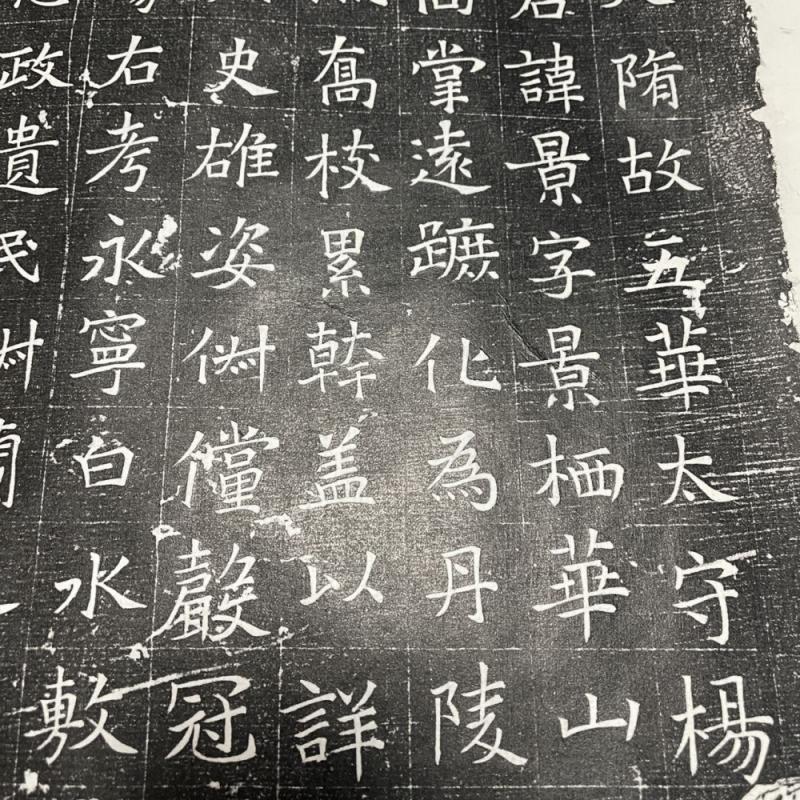 隋故五華太守楊
君諱景字景栖華山
掌遠蹠化為丹陵
髙校累幹盖以詳
史雄姿俶儻聲冠
右考永寧白水敷
政遺民